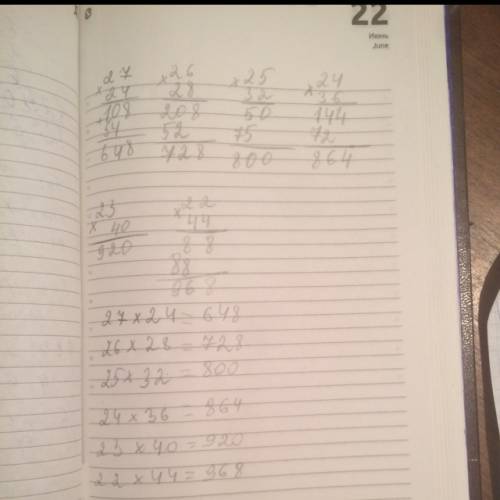 22
Июнь
June
27 × 24 108 54 648
26 × 28 208 52 728
25 × 32 50 75 800
24 × 36 144 72 864
23 × 40 920
22 × 44 88 88 968
27 × 24 = 648
26 × 28 = 728
25 × 32 = 800
24 × 36 = 864
23 × 40 = 920
22 × 44 = 968